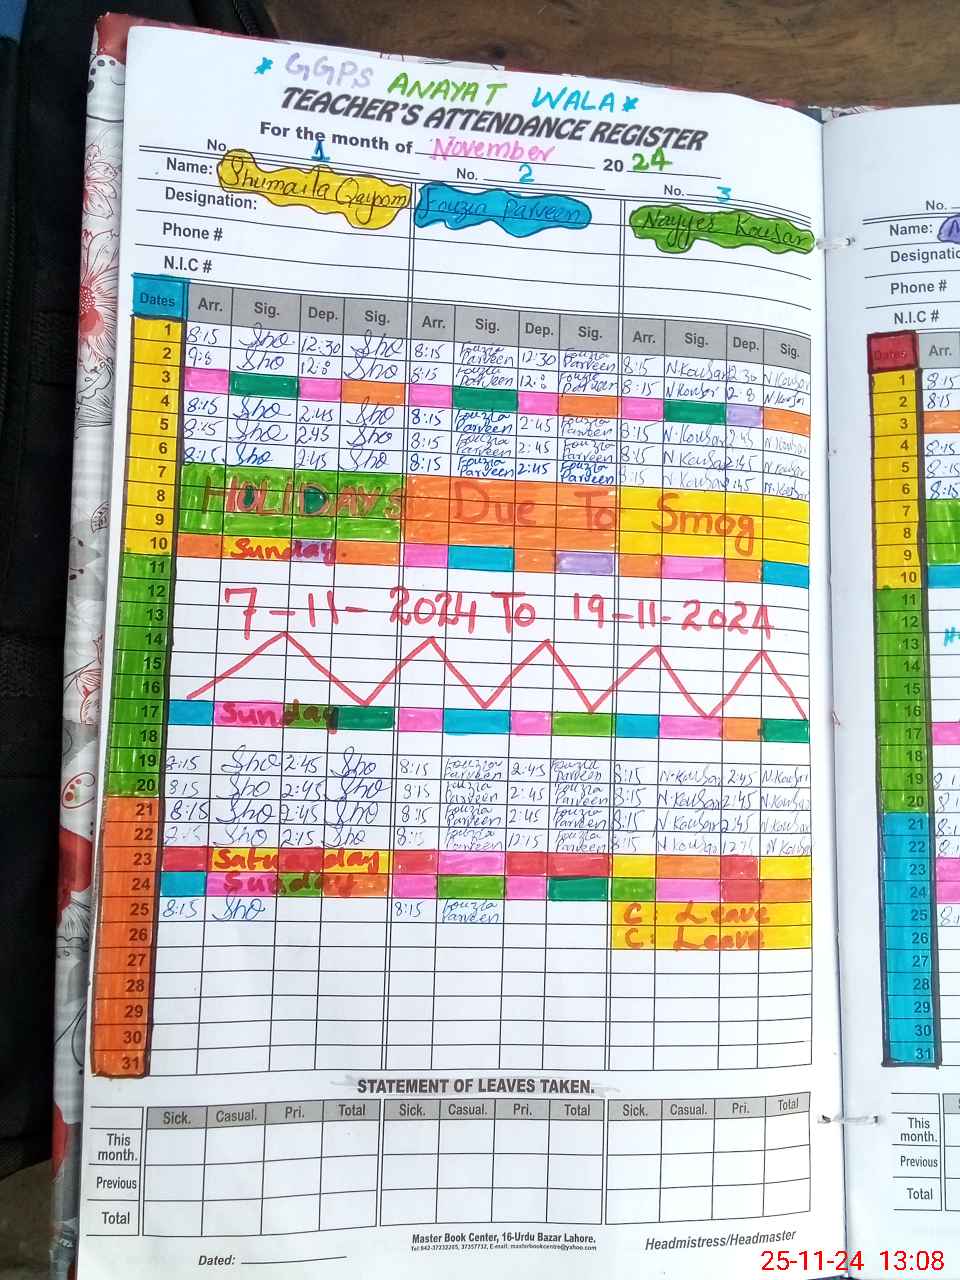 GGPS ANAYAT WALA
TEACHER'S ATTENDANCE REGISTER
For the month of November 2024
No. 1 No. 2 No. 3
Name: Shumaila Qayoom Fouzia Parveen Nayyer Kousar
Designation:
Phone #
N.I.C #
Dates Arr. Sig. Dep. Sig. Arr. Sig. Dep. Sig. Arr. Sig. Dep. Sig.
1 8:15 Sho 12:30 Sho 8:15 Fouzia Parveen 12:30 Fouzia Parveen 8:15 N Kousar N Kousar
2 Sho 12:0 Sho 8:15 Fouzia Parveen 12:0 Fouzia Parveen 8:15 N Kousar N Kousar
3
4 8:15 Sho 2:45 Sho 8:15 Fouzia Parveen 2:45 Fouzia Parveen 8:15 N. Kousar 2:45 N. Kousar
5 8:15 Sho 2:45 Sho 8:15 Fouzia Parveen 2:45 Fouzia Parveen 8:15 N Kousar 2:45 N. Kousar
6 8:15 Sho 2:45 Sho 8:15 Fouzia Parveen 2:45 Fouzia Parveen 8:15 N Kousar 2:45 N. Kousar
7
8 HOLIDAYS Due To Smog
9
10 Sunday
11
12
13 7-11-2024 To 19-11-2024
14
15
16
17 Sunday
18
19 8:15 Sho 2:45 Sho 8:15 Fouzia Parveen 2:45 Fouzia Parveen 8:15 N. Kousar 2:45 N. Kousar
20 8:15 Sho 2:45 Sho 8:15 Fouzia Parveen 2:45 Fouzia Parveen 8:15 N. Kousar 2:45 N. Kousar
21 8:15 Sho 2:45 Sho 8:15 Fouzia Parveen 2:45 Fouzia Parveen 8:15 N Kousar 2:45 N. Kousar
22 Sho 2:15 Sho 8:15 Fouzia Parveen 12:15 Fouzia Parveen 8:15 N Kousar N Kousar
23 Saturday
24 Sunday
25 8:15 Sho 8:15 Fouzia Parveen C: Leave
26 C: Leave
27
28
29
30
31
STATEMENT OF LEAVES TAKEN.
Sick. Casual. Pri. Total Sick. Casual. Pri. Total Sick. Casual. Pri. Total
This month.
Previous
Total
Master Book Center, 16-Urdu Bazar Lahore.
Tel:042-37232205, 37357732, E-mail: masterbookcentre@yahoo.com
Dated: Headmistress/Headmaster
No.
Name:
Designatio
Phone #
N.I.C #
Dates Arr.
1 8:15
2 8:15
3
4
5
6 8:15
7
8
9
10
11
12
13
14
15
16
17
18
19
20
21
22
23
24
25
26
27
28
29
30
31
This month.
Previous
Total
25-11-24 13:08